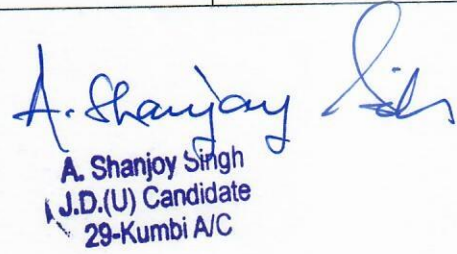 A. Shanjoy Singh
A. Shanjoy Singh
J.D.(U) Candidate
29-Kumbi A/C